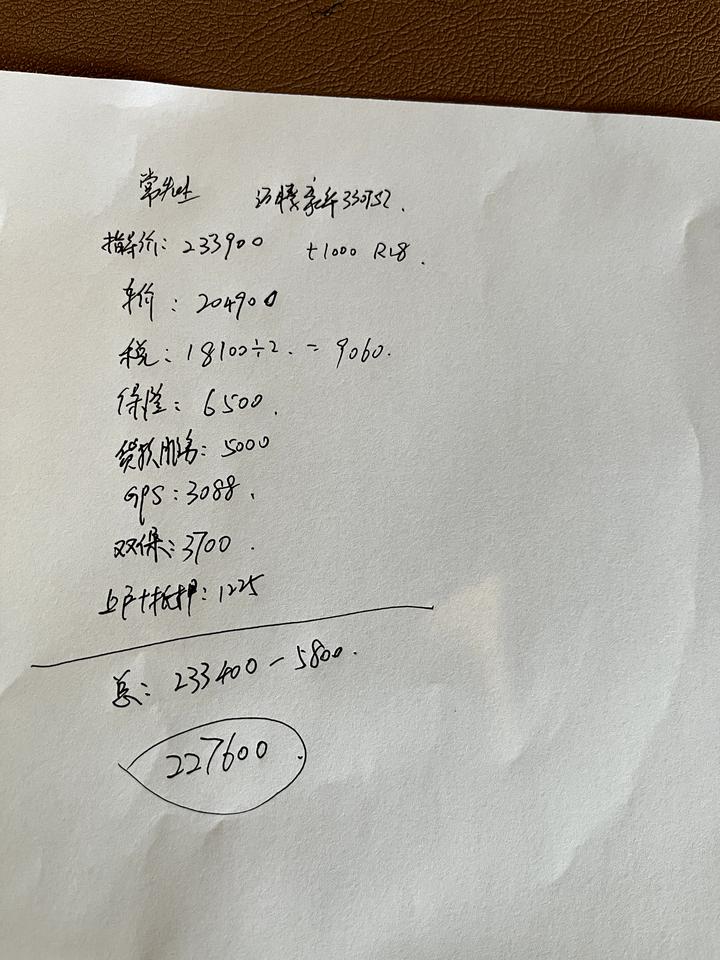 常先生 迈腾豪华330TSI.
指导价: 233900 +1000 R18.
车价: 204900
税: 18100÷2. = 9060.
保险: 6500.
贷款服务: 5000
GPS: 3088.
双保: 3700.
上户+抵押: 1225
总: 233400 - 5800.
227600